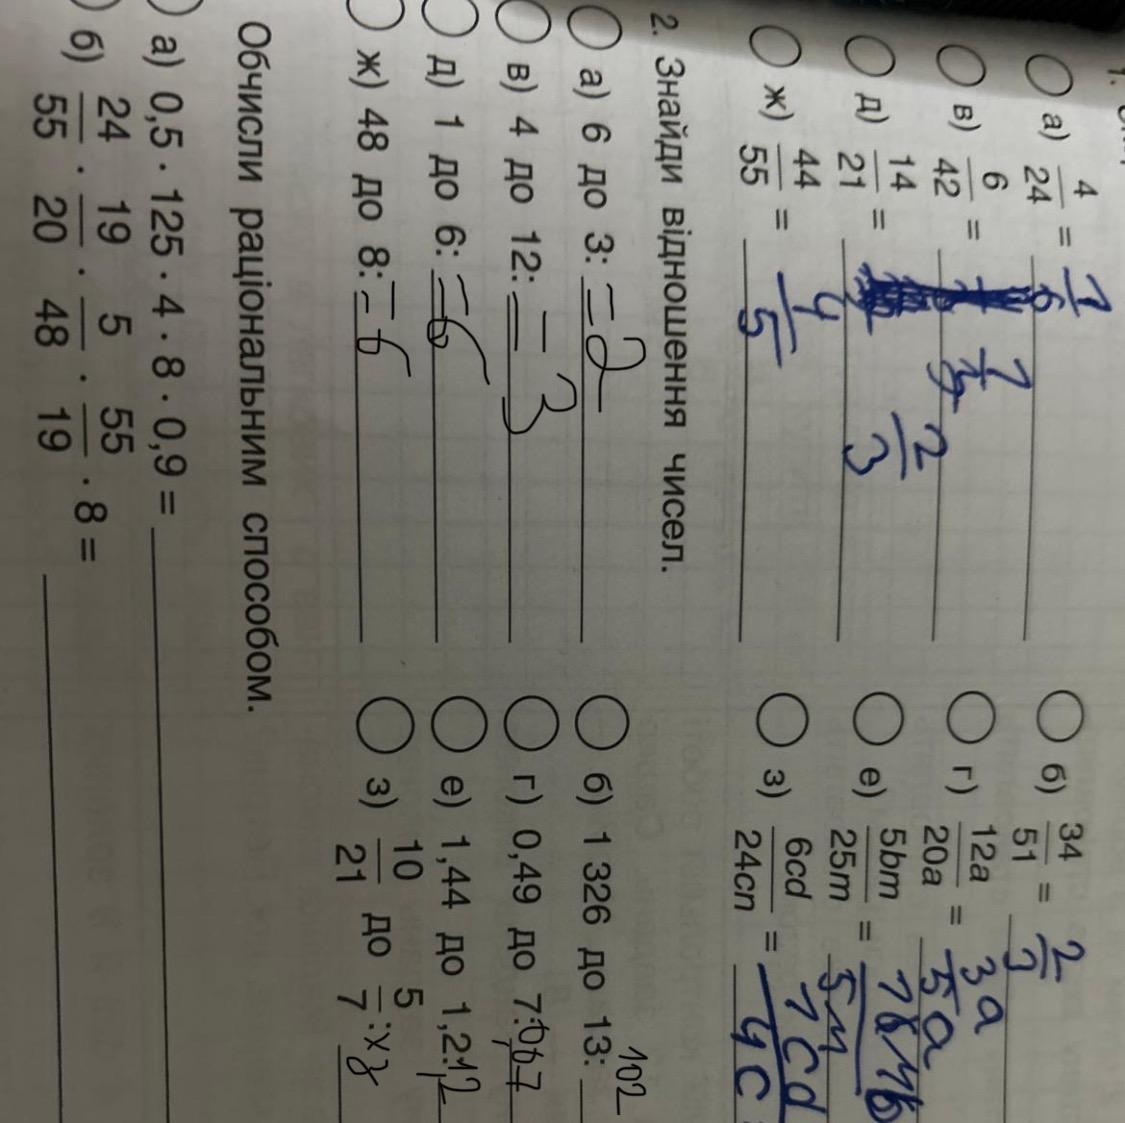 1.
а) 4/24 = 1/6
б) 34/51 = 2/3
в) 6/42 =
г) 12a/20a = 3a/5a
д) 14/21 = 2/3
е) 5bm/25m =
ж) 44/55 = 4/5
з) 6cd/24cn = 1cd/4c
2. Знайди відношення чисел.
а) 6 до 3: = 2
б) 1 326 до 13: 102
в) 4 до 12: = 3
г) 0,49 до 7: 0,07
д) 1 до 6: = 6
е) 1,44 до 1,2: 1,2
ж) 48 до 8: = 6
з) 10/21 до 5/7:
Обчисли раціональним способом.
а) 0,5 · 125 · 4 · 8 · 0,9 =
б) 24/55 · 19/20 · 5/48 · 55/19 · 8 =